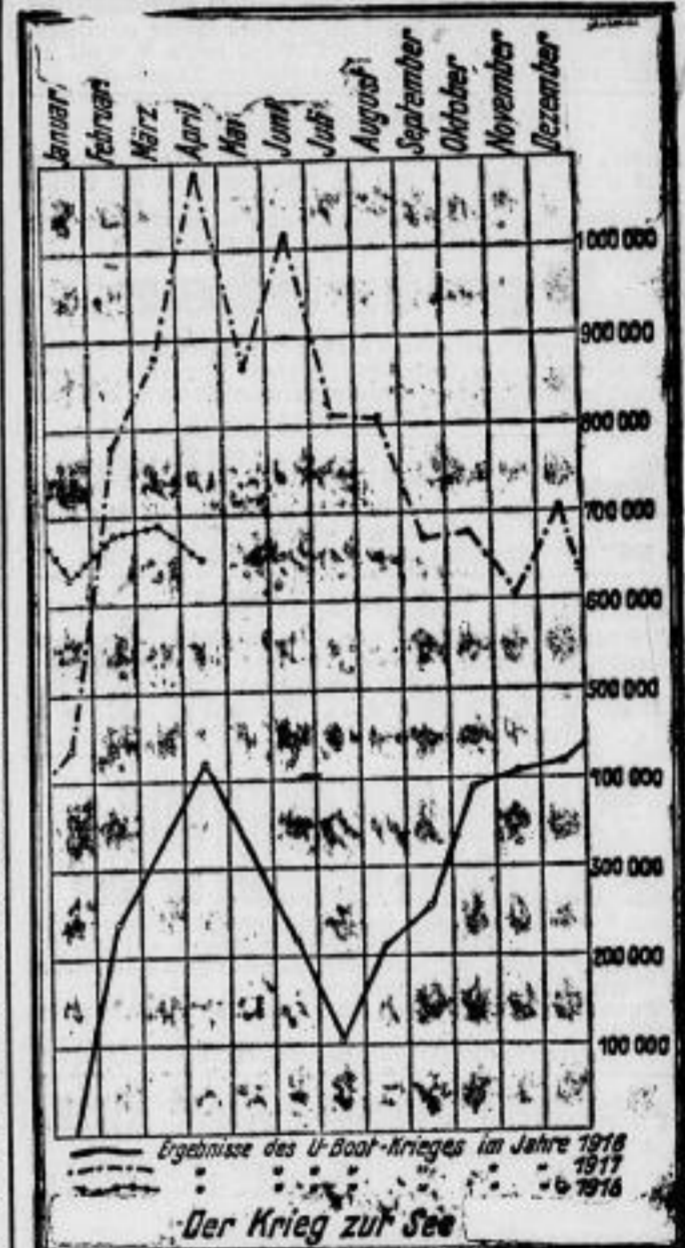 Januar
Februar
März
April
Mai
Juni
Juli
August
September
Oktober
November
Dezember
1000 000
900 000
800 000
700 000
600 000
500 000
400 000
300 000
200 000
100 000
Ergebnisse des U-Boot-Krieges im Jahre 1916
" " " " " " " 1917
" " " " " " " 1918
Der Krieg zur See